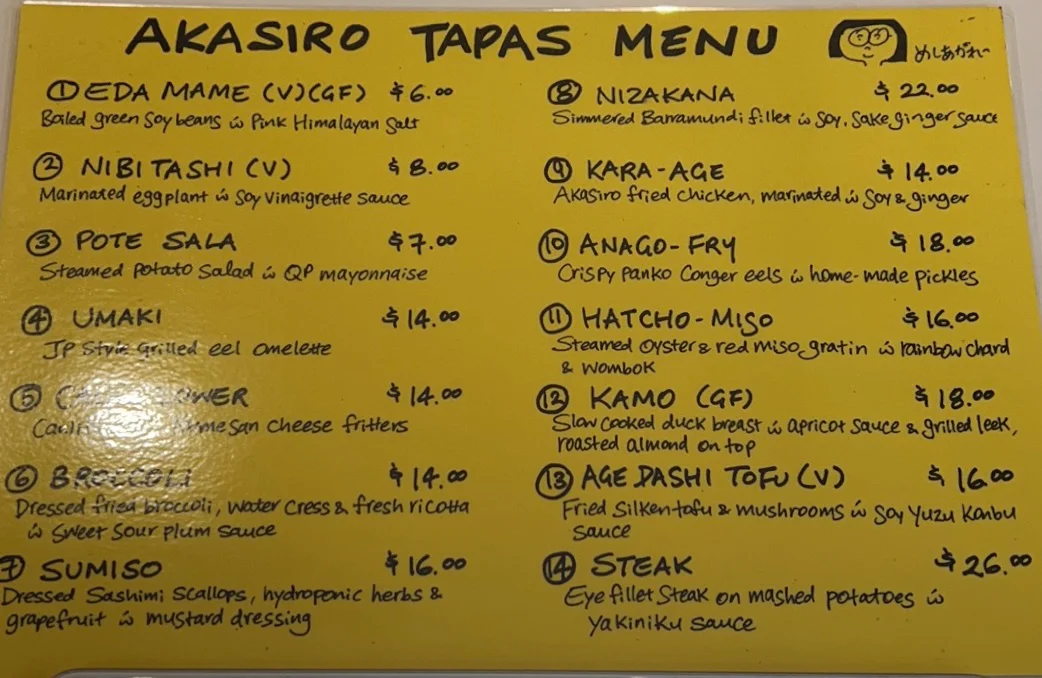 AKASIRO TAPAS MENU
めしあがれー
① EDA MAME (V)(GF) $6.00
Boiled green soy beans ω Pink Himalayan Salt
② NIBITASHI (V) $8.00
Marinated eggplant ω Soy Vinaigrette sauce
③ POTE SALA $7.00
Steamed Potato Salad ω QP mayonnaise
④ UMAKI $14.00
JP Style Grilled eel omelette
⑤ $14.00
cheese fritters
⑥ BROCCOLI $14.00
Dressed fried broccoli, water cress & fresh ricotta
ω Sweet Sour Plum sauce
⑦ SUMISO $16.00
Dressed Sashimi Scallops, hydroponic herbs &
grapefruit ω mustard dressing
⑧ NIZAKANA $22.00
Simmered Barramundi fillet ω Soy, Sake, ginger sauce
⑨ KARA-AGE $14.00
Akasiro fried chicken, marinated ω Soy & ginger
⑩ ANAGO-FRY $18.00
Crispy Panko Conger eels ω home-made pickles
⑪ HATCHO-MISO $16.00
Steamed Oyster & red miso gratin ω rainbow chard
& wombok
⑫ KAMO (GF) $18.00
Slow cooked duck breast ω apricot sauce & grilled leek,
roasted almond on top
⑬ AGE DASHI TOFU (V) $16.00
Fried Silken tofu & mushrooms ω Soy Yuzu Konbu
sauce
⑭ STEAK $26.00
Eye fillet Steak on mashed potatoes ω
Yakiniku Sauce